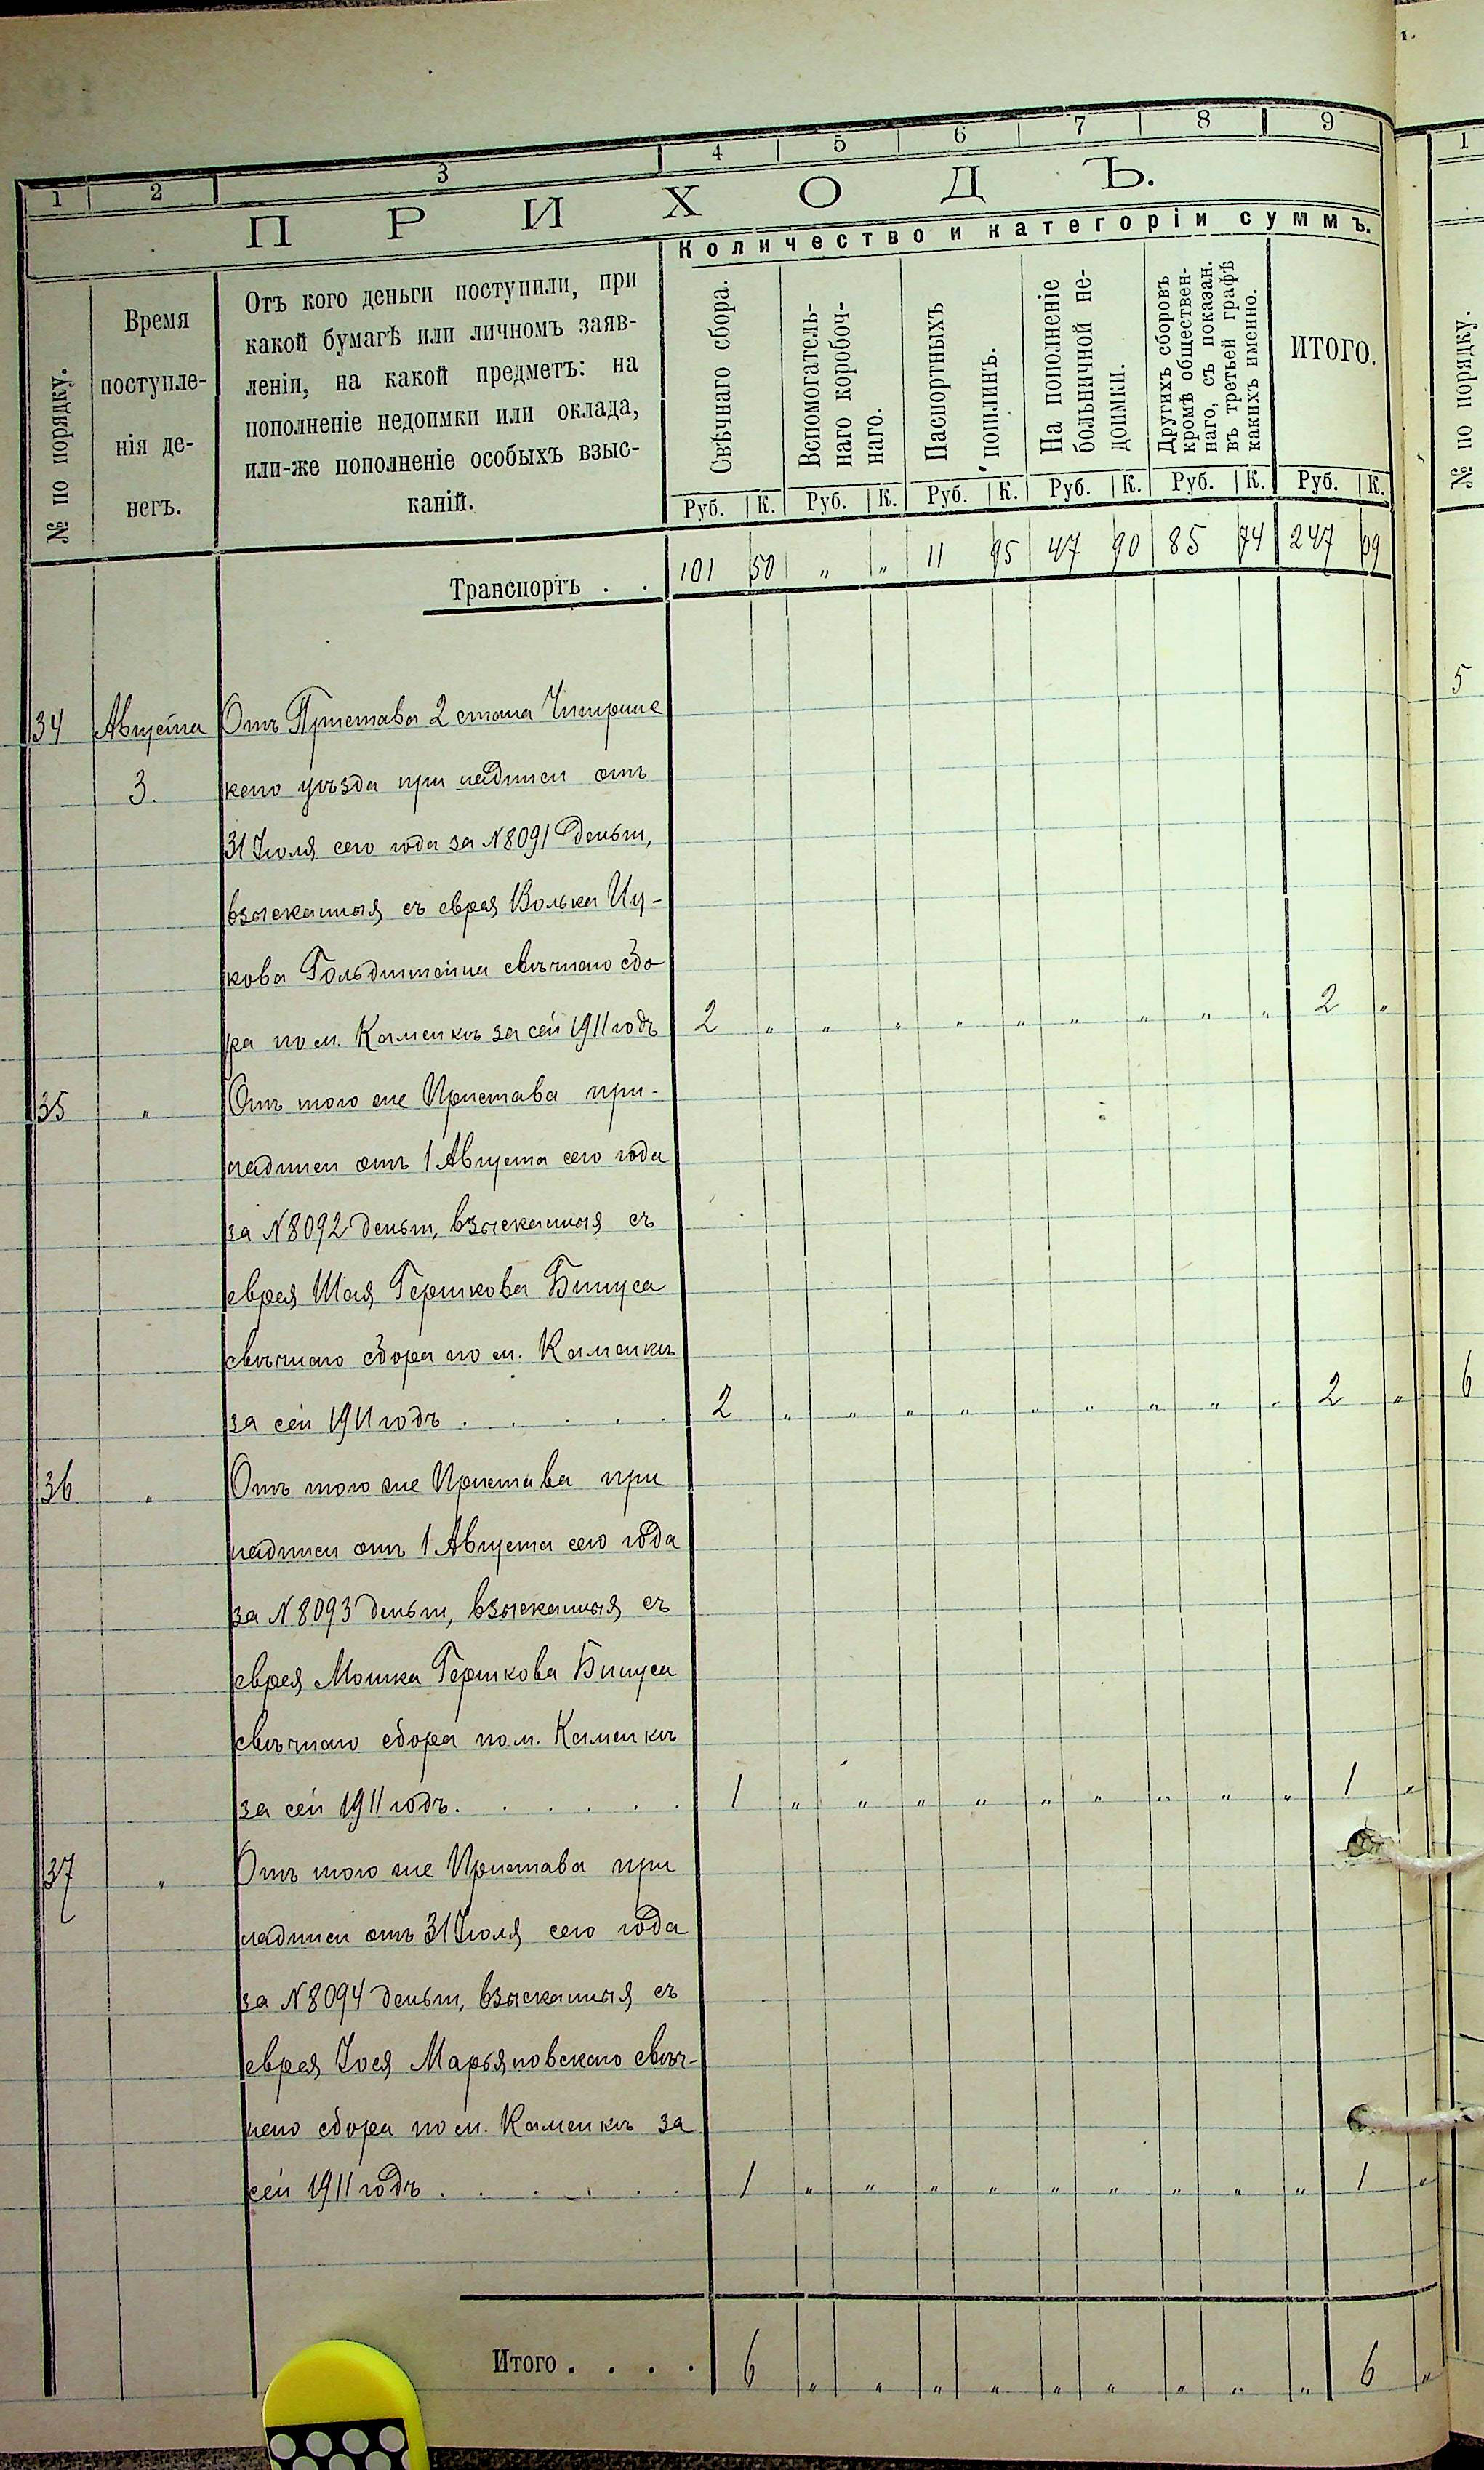 1 2 3 4 5 6 7 8 9
ПРИХОДЪ.
Количество и категоріи суммъ.
№ по порядку.
Время поступле-
нія де-
негъ.
Отъ кого деньги поступили, при
какой бумагѣ или личномъ заяв-
леніи, на какой предметъ: на
пополненіе недоимки или оклада,
или-же пополненіе особыхъ взыс-
каній.
Свѣчнаго сбора.
Вспомогатель-
наго коробоч-
наго.
Паспортныхъ
пошлинъ.
На пополненіе
больничной не-
доимки.
Другихъ сборовъ
кромѣ обществен-
наго, съ показан.
въ третьей графѣ
какихъ именно.
ИТОГО.
Руб. К. Руб. К. Руб. К. Руб. К. Руб. К. Руб. К.
Транспортъ . . 101 50 „ „ 11 95 47 90 85 74 247 09
34 Августа Отъ Пристава 2 стана Чигирине
3. каго уѣзда при надписи отъ
31 Іюля сего года за №8091 деньги,
взысканныя съ еврея Волька Иц-
кова Гольдштейна свѣчнаго сбо
ра по м. Каменкѣ за сей 1911 годъ 2 „ „ „ „ „ „ „ „ „ 2 „
35 „ Отъ того же Пристава при-
надписи отъ 1 Августа сего года
за №8092 деньги, взысканныя съ
еврея Шая Гершкова Бинуса
свѣчнаго сбора по м. Каменкѣ
за сей 1911 годъ . . . . . 2 „ „ „ „ „ „ „ „ „ 2 „
36 „ Отъ того же Пристава при
надписи отъ 1 Августа сего года
за №8093 деньги, взысканныя съ
еврея Мошка Гершкова Бинуса
свѣчнаго сбора по м. Каменкѣ
за сей 1911 годъ. . . . . . 1 „ „ „ „ „ „ „ „ „ 1 „
37 „ Отъ того же Пристава при
надписи отъ 31 Іюля сего года
за №8094 деньги, взысканныя съ
еврея Іося Марьяновскаго свѣч-
наго сбора по м. Каменкѣ за
сей 1911 годъ . . . . . . 1 „ „ „ „ „ „ „ „ „ 1 „
Итого . . . . 6 „ „ „ „ „ „ „ „ „ 6 „
1
№ по порядку.
5
6